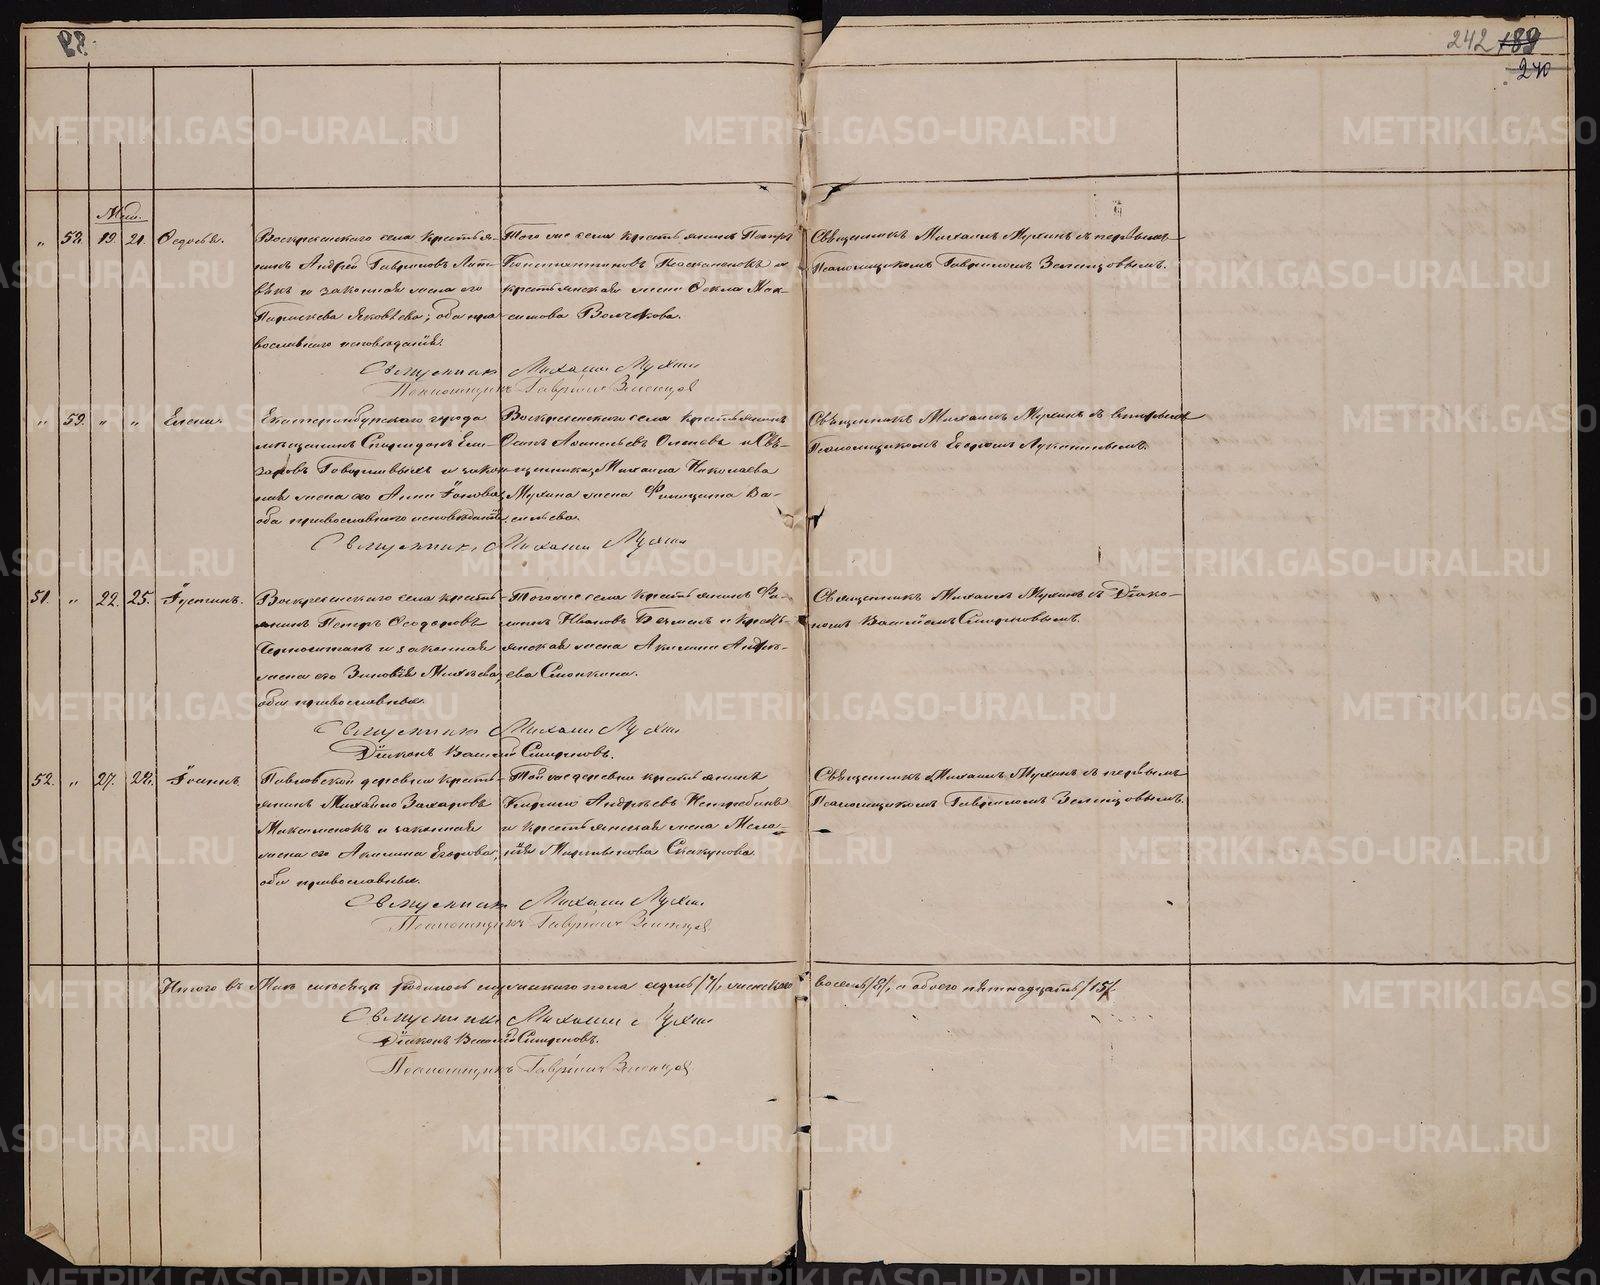 88.
242 189
240
Май.
„ 58. 19. 21. Ѳедосья.
Воскресенскаго села крестья-
нинъ Андрей Гавриловъ
и законная жена его
Параскева Яковлева; оба пра-
вославнаго исповѣданія.
Того же села крестьянинъ Петръ
Константиновъ и
крестьянская жена Ѳекла Мак-
симова Волчкова.
Священникъ Михаилъ Мухинъ съ первымъ
Псаломщикомъ Гавріиломъ Зеленцовымъ.
Священникъ Михаилъ Мухинъ
Псаломщикъ Гавріилъ Зеленцов
„ 59. „ „ Елена.
Екатеринбургскаго города
мѣщанинъ Спиридонъ Ели-
заровъ Говорливыхъ и закон-
ная жена его Анна Іонова,
оба православнаго исповѣданія.
Воскресенскаго села крестьянинъ
и Свя-
щенника, Михаила Николаева
Мухина жена Филицата Ва-
сильева.
Священникъ Михаилъ Мухинъ съ вторымъ
Псаломщикомъ Егоромъ Лукинымъ.
Священникъ Михаилъ Мухинъ
51. „ 22. 25. Іустинъ.
Воскресенскаго села кресть-
янинъ Петръ Ѳеодоровъ
и законная
жена его Зиновія Михѣева,
оба православные.
Того же села крестьянинъ Фи-
липъ Ивановъ и кресть-
янская жена Акилина Андрѣ-
ева
Священникъ Михаилъ Мухинъ съ Діако-
номъ Василіемъ Смирновымъ.
Священникъ Михаилъ Мухинъ
Діаконъ Василій Смирновъ.
52. „ 27. 28. Іоаннъ.
Павловской деревни кресть-
янинъ Михайло Захаровъ
и законная
жена его Акилина Егорова,
оба православные.
Той же деревни крестьянинъ
Кирилъ Андрѣевъ
и крестьянская жена Мела-
нія Скакунова.
Священникъ Михаилъ Мухинъ съ первымъ
Псаломщикомъ Гавріиломъ Зеленцовымъ.
Священникъ Михаилъ Мухинъ
Псаломщикъ Гавріилъ Зеленцов
Итого въ Маѣ мѣсяцѣ родилось мужескаго пола седмь /7/, женскаго восемь /8/, а обоего пятнадцать /15/.
Священникъ Михаилъ Мухинъ
Діаконъ Василій Смирновъ.
Псаломщикъ Гавріилъ Зеленцов
METRIKI.GASO-URAL.RU